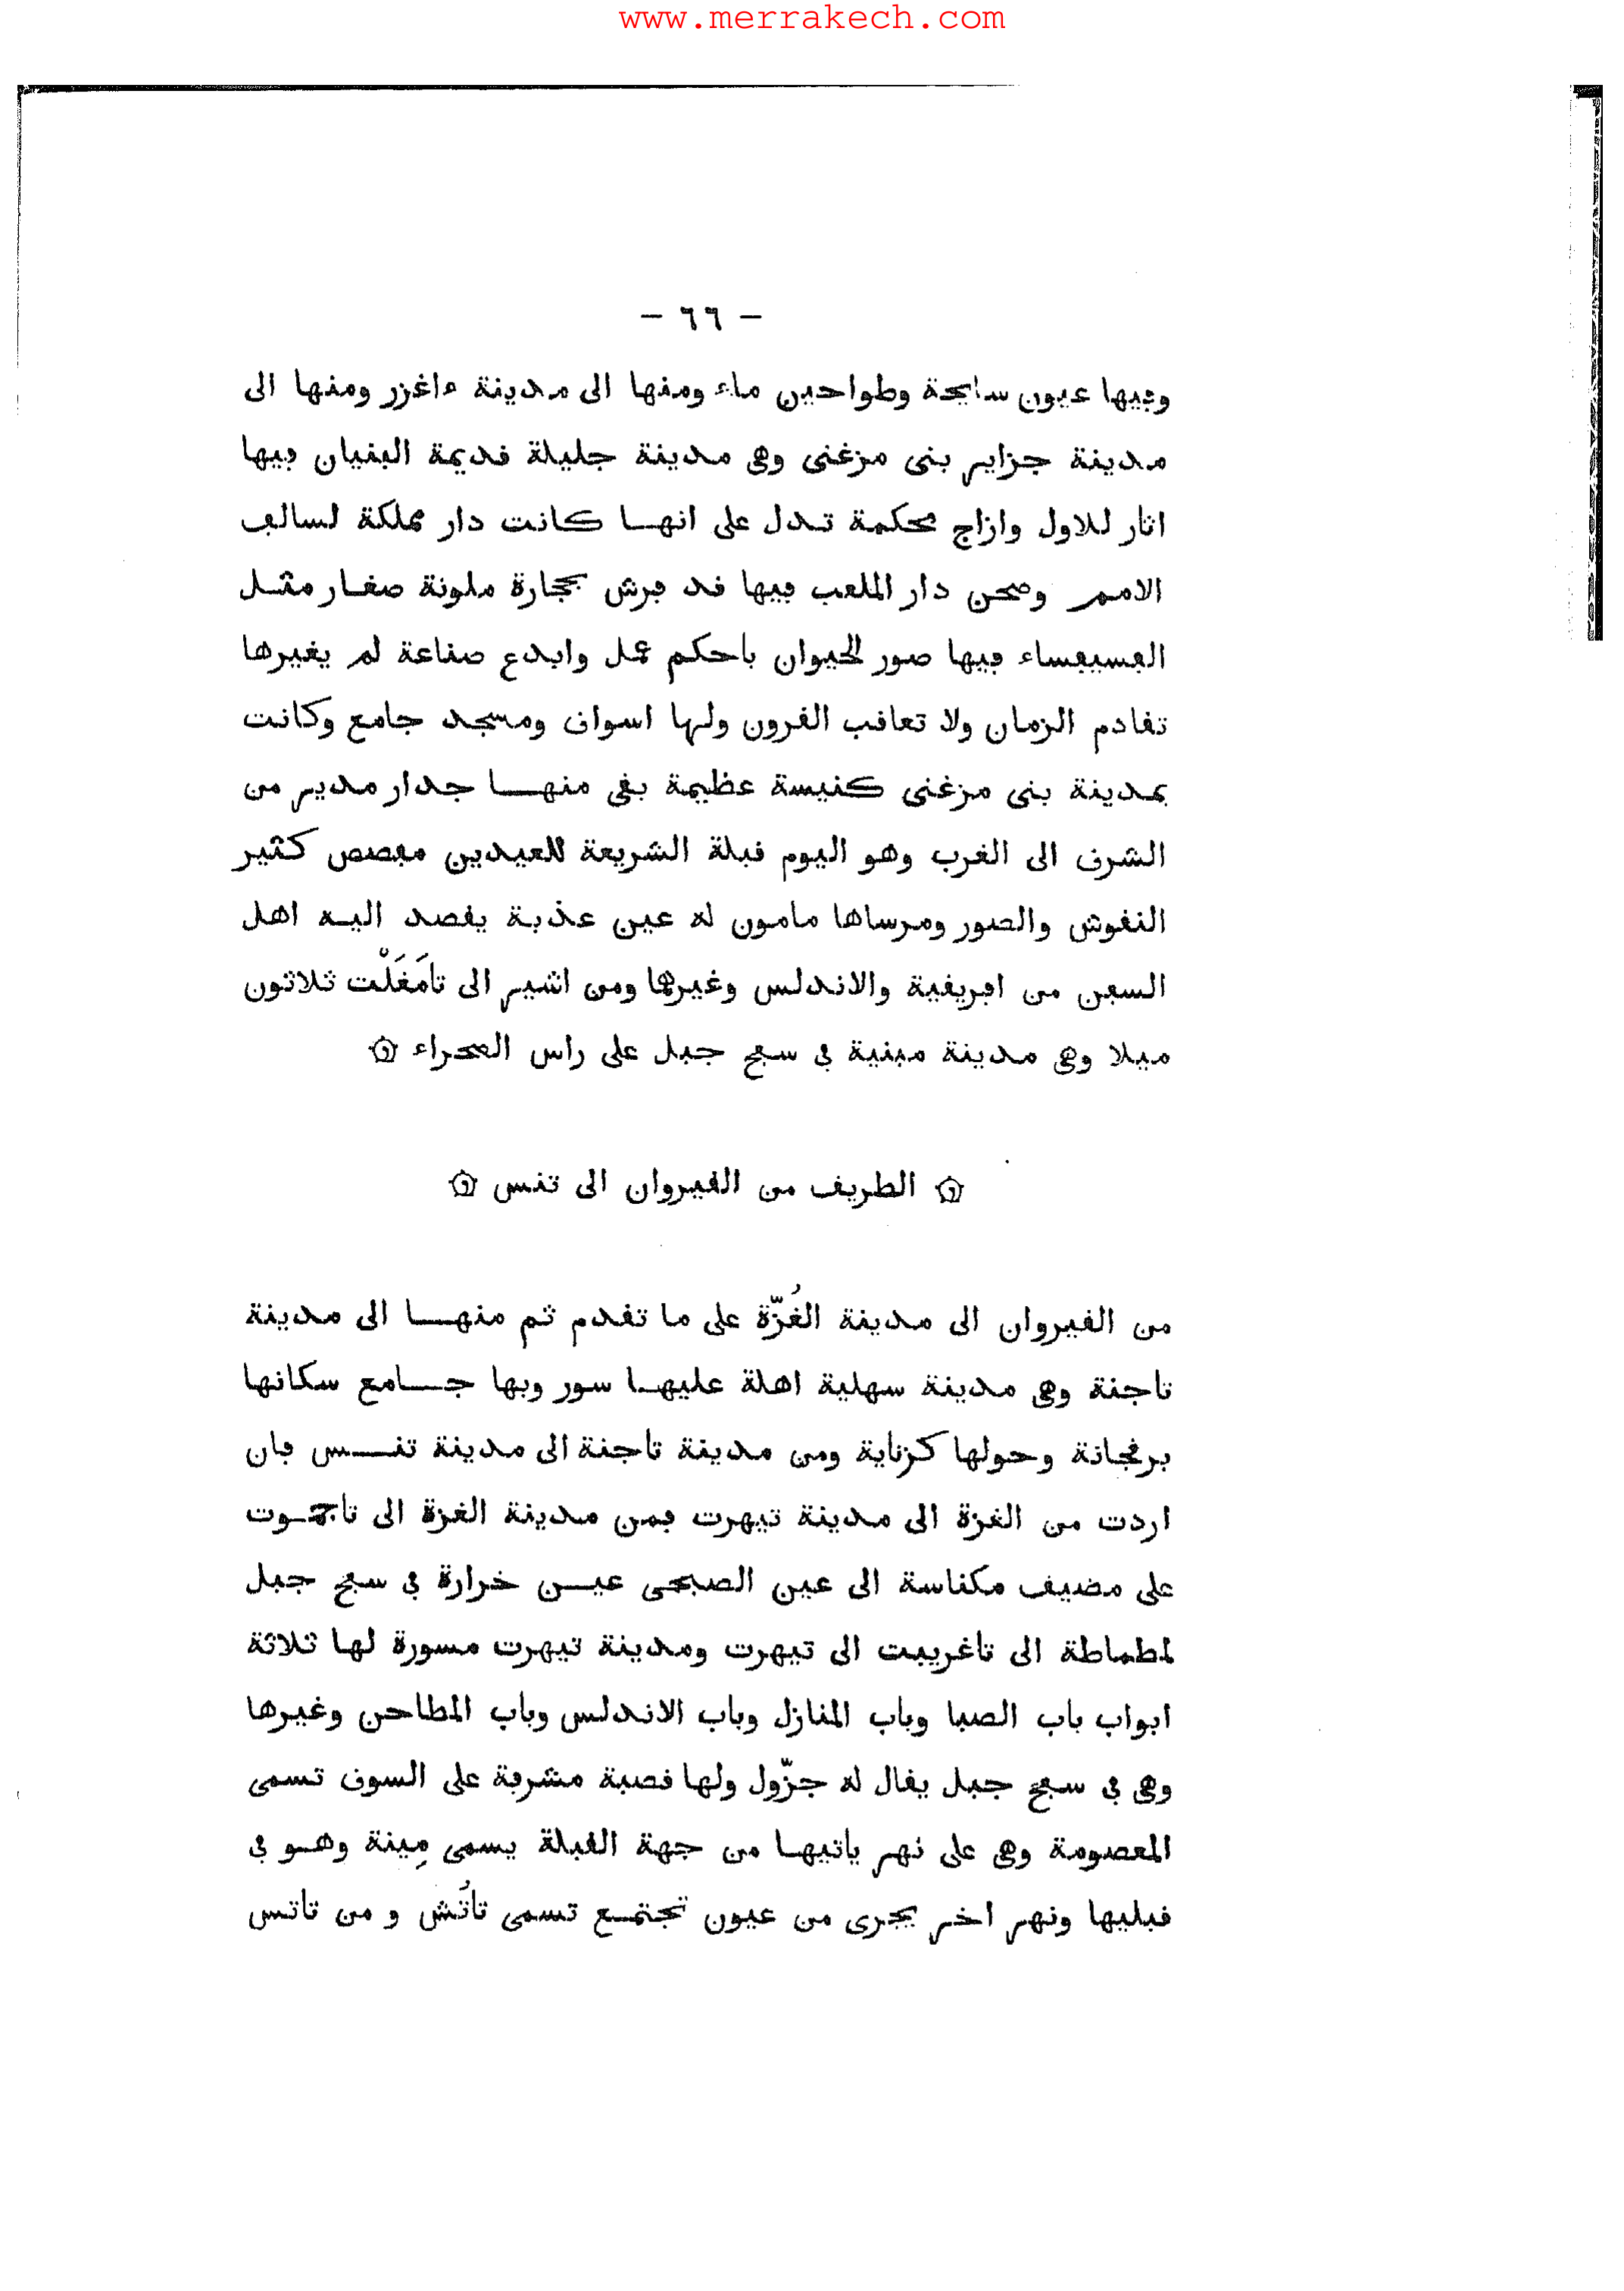 www.merrakech.com
- ٦٦ -
وفيها عيون سايحة وطواحين ماء ومنها الى مدينة ءاغزر ومنها الى
مدينة جزاير بنى مزغنى وهى مدينة جليلة قديمة البنيان فيها
اثار للاول وازاج محكمة تدل على انها كانت دار مملكة لسالف
الامم وصحن دار الملعب فيها قد فرش بحجارة ملونة صغار مثل
الفسيفساء فيها صور الحيوان باحكم عمل وابدع صناعة لم يغيرها
تقادم الزمان ولا تعاقب القرون ولها اسواق ومسجد جامع وكانت
بمدينة بنى مزغنى كنيسة عظيمة بقى منها جدار مدير من
الشرق الى الغرب وهو اليوم قبلة الشريعة للعيدين مفصص كثير
النقوش والصور ومرساها مامون له عين عذبة يقصد اليه اهل
السفن من افريقية والاندلس وغيرهما ومن اشير الى تامَغَلْت ثلاثون
ميلا وهى مدينة مبنية فى سفح جبل على راس الصحراء ۞
۞ الطريق من القيروان الى تنس ۞
من القيروان الى مدينة الغُزّة على ما تقدم ثم منها الى مدينة
تاجنة وهى مدينة سهلية اهلة عليها سور وبها جامع سكانها
برغجانة وحولها كزناية ومن مدينة تاجنة الى مدينة تنس فان
اردت من الغزة الى مدينة تيهرت فمن مدينة الغزة الى تاجموت
على مضيق مكناسة الى عين الصبحى عين خرارة فى سفح جبل
لمطماطة الى تاغريبت الى تيهرت ومدينة تيهرت مسورة لها ثلاثة
ابواب باب الصبا وباب المنازل وباب الاندلس وباب المطاحن وغيرها
وهى فى سفح جبل يقال له جزّول ولها قصبة مشرفة على السوق تسمى
المعصومة وهى على نهر ياتيها من جهة القبلة يسمى مِينة وهو فى
قبليها ونهر اخر يجرى من عيون تجتمع تسمى تاتُش و من تاتس